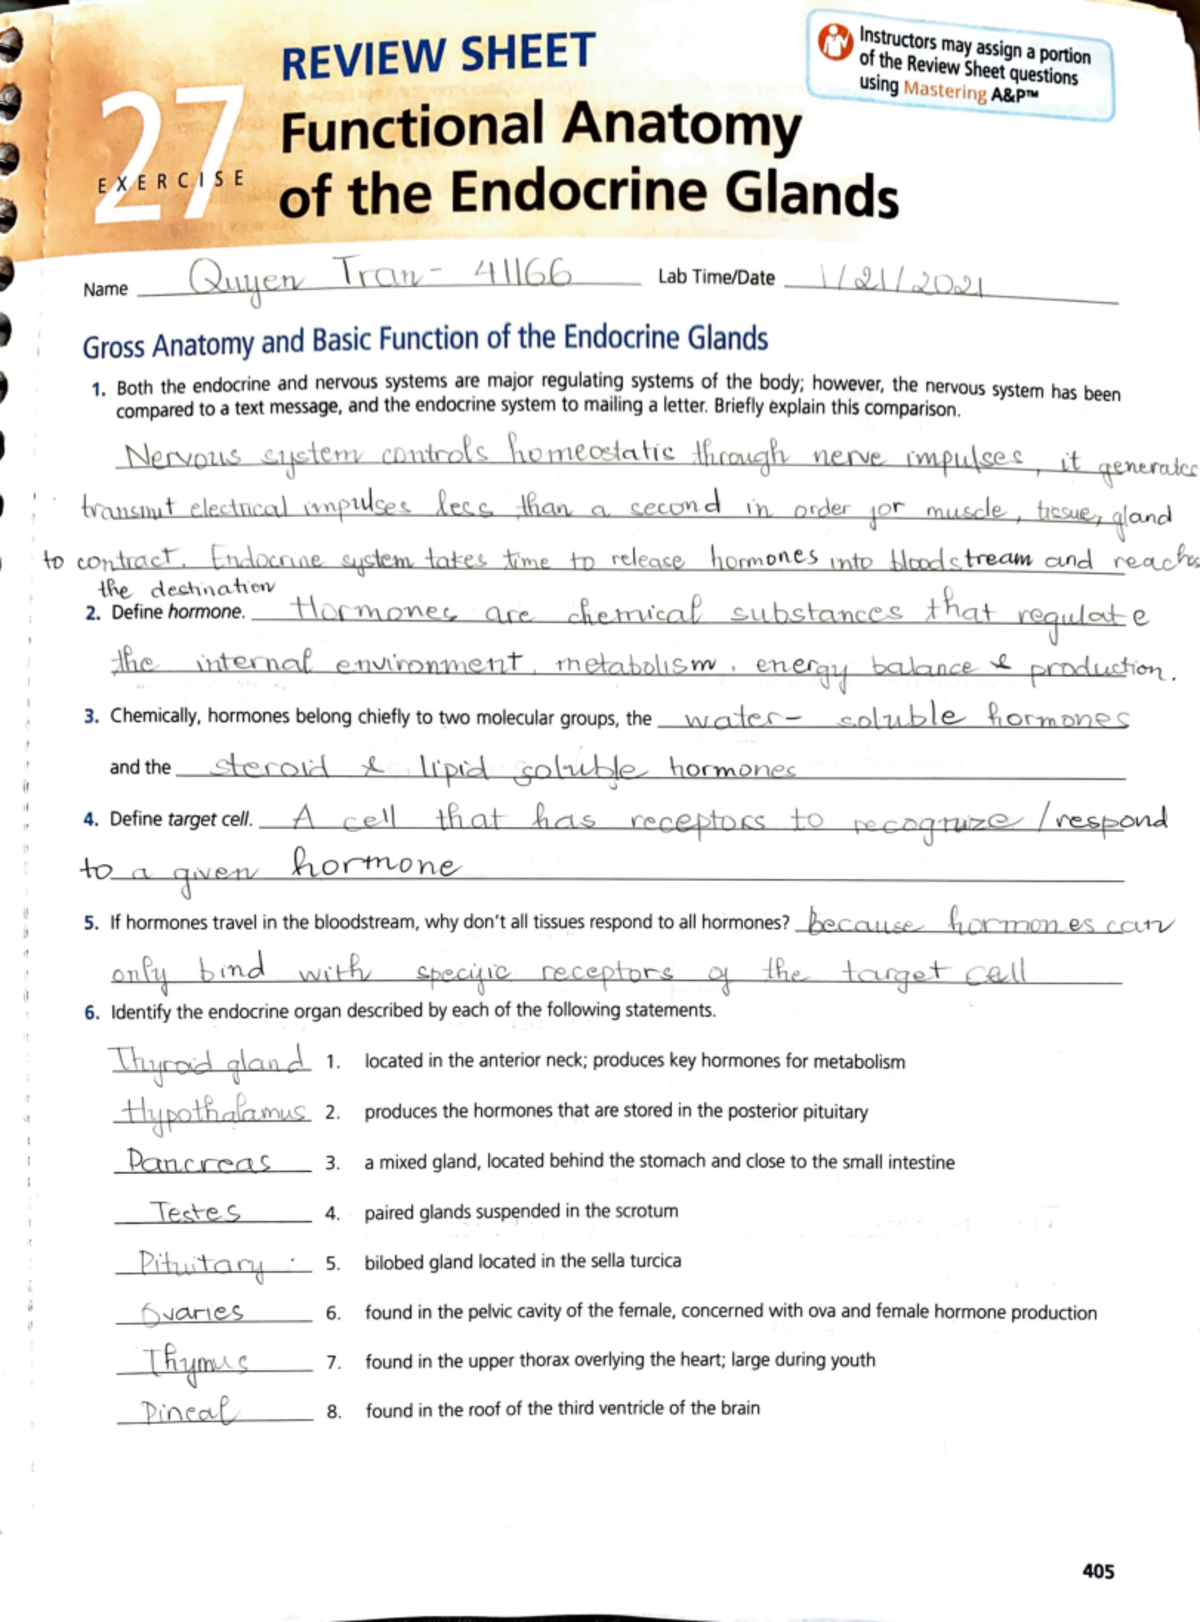 REVIEW SHEET
Instructors may assign a portion
of the Review Sheet questions
using Mastering A&P™
27
EXERCISE
Functional Anatomy
of the Endocrine Glands
Name Quyen Tran - 41166 Lab Time/Date 1/21/2021
Gross Anatomy and Basic Function of the Endocrine Glands
1. Both the endocrine and nervous systems are major regulating systems of the body; however, the nervous system has been
compared to a text message, and the endocrine system to mailing a letter. Briefly explain this comparison.
Nervous system controls homeostatic through nerve impulses, it generates
transmit electrical impulses less than a second in order for muscle, tissue, gland
to contract. Endocrine system takes time to release hormones into bloodstream and reaches
the destination
2. Define hormone. Hormones are chemical substances that regulate
the internal environment, metabolism, energy balance & production.
3. Chemically, hormones belong chiefly to two molecular groups, the water-soluble hormones
and the steroid & lipid soluble hormones
4. Define target cell. A cell that has receptors to recognize /respond
to a given hormone
5. If hormones travel in the bloodstream, why don't all tissues respond to all hormones? Because hormones can
only bind with specific receptors of the target cell
6. Identify the endocrine organ described by each of the following statements.
Thyroid gland 1. located in the anterior neck; produces key hormones for metabolism
Hypothalamus 2. produces the hormones that are stored in the posterior pituitary
Pancreas 3. a mixed gland, located behind the stomach and close to the small intestine
Testes 4. paired glands suspended in the scrotum
Pituitary 5. bilobed gland located in the sella turcica
Ovaries 6. found in the pelvic cavity of the female, concerned with ova and female hormone production
Thymus 7. found in the upper thorax overlying the heart; large during youth
Pineal 8. found in the roof of the third ventricle of the brain
405